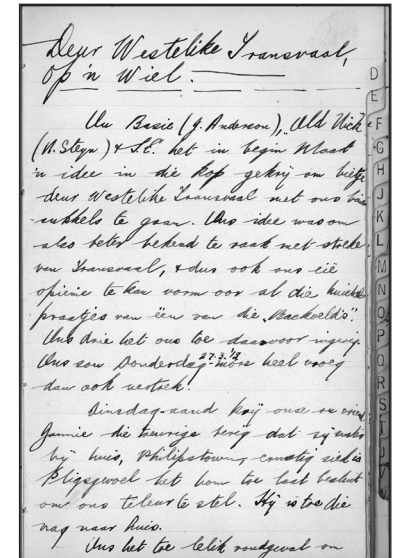 Deur Westelike Transvaal,
op 'n Wiel.
Ou Basie (J. Anderson), "Old Nick"
(N. Steyn) & S.E. het in begin Maart
'n idee in die kop gekry om bietjie
deur Westelike Transvaal met ons
te gaan. Ons idee was om
alles beter bekend te raak met streke
van Transvaal, & dus ook ons eië
opienie te kan vorm oor al die
praatjes van een van die "Backvelds".
Ons drie het ons toe daarvoor ingerig.
Ons sou Donderdag 27.3.18 môre heel vroeg
dan ook vertrek.
Dinsdag-aand kry onse ou vriend
Jannie die treurige berig dat sy suster
by huis, Philipstown, ernstig siek is
Pligsgevoel het hom toe laat besluit
om ons teleur te stel. Hy is toe die
nag naar huis.
Ons het toe lelik rondgeval om
D
E
F
G
H
J
K
L
M
N
O
P
Q
R
S
T
U